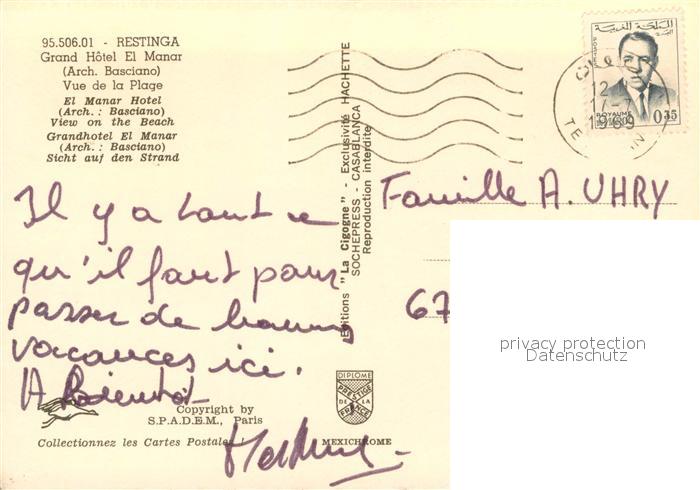 95.506.01 - RESTINGA
Grand Hôtel El Manar
(Arch. Basciano)
Vue de la Plage
El Manar Hotel
(Arch. : Basciano)
View on the Beach
Grandhotel El Manar
(Arch. : Basciano)
Sicht auf den Strand
Il y a tout ce
qu'il faut pour
passer de bonnes
vacances ici.
A Bientôt
Copyright by
S.P.A.D.E.M., Paris
Collectionnez les Cartes Postales !
Editions "La Cigogne" - Exclusivité HACHETTE
SOCHEPRESS - CASABLANCA
Reproduction interdite
DIPLOME
PRESTIGE
DE LA
FRANCE
MEXICHROME
المملكة المغربية
POSTES
ROYAUME
DU MAROC
0,35
12
17-7
1969
Famille A. UHRY
67
privacy protection
Datenschutz